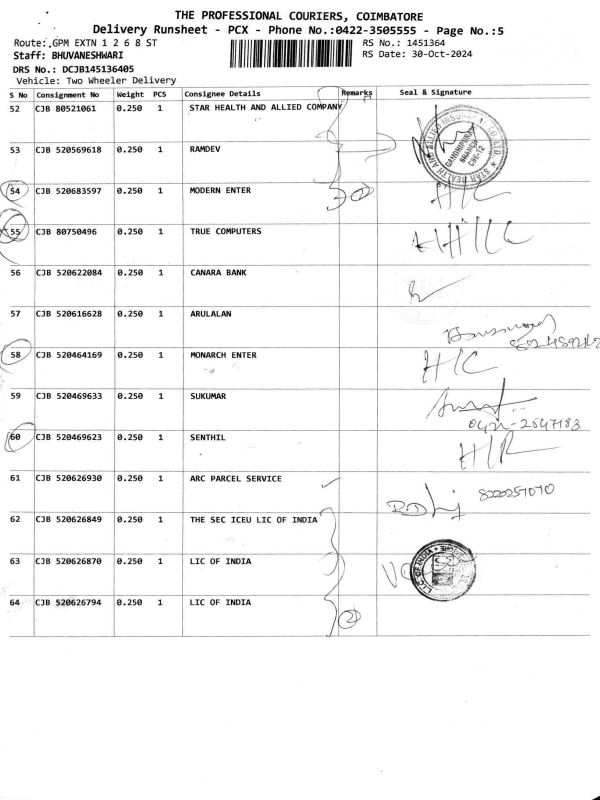 THE PROFESSIONAL COURIERS, COIMBATORE
Delivery Runsheet - PCX - Phone No.:0422-3505555 - Page No.:5
Route: GPM EXTN 1 2 6 8 ST RS No.: 1451364
Staff: BHUVANESHWARI RS Date: 30-Oct-2024
DRS No.: DCJB145136405
Vehicle: Two Wheeler Delivery
S No Consignment No Weight PCS Consignee Details Remarks Seal & Signature
52 CJB 80521061 0.250 1 STAR HEALTH AND ALLIED COMPANY
53 CJB 520569618 0.250 1 RAMDEV
54 CJB 520683597 0.250 1 MODERN ENTER
55 CJB 80750496 0.250 1 TRUE COMPUTERS
56 CJB 520622084 0.250 1 CANARA BANK
57 CJB 520616628 0.250 1 ARULALAN
58 CJB 520464169 0.250 1 MONARCH ENTER
59 CJB 520469633 0.250 1 SUKUMAR
60 CJB 520469623 0.250 1 SENTHIL
61 CJB 520626930 0.250 1 ARC PARCEL SERVICE 8220257070
62 CJB 520626849 0.250 1 THE SEC ICEU LIC OF INDIA
63 CJB 520626870 0.250 1 LIC OF INDIA
64 CJB 520626794 0.250 1 LIC OF INDIA